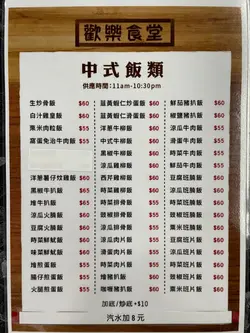 歡樂食堂
中式飯類
供應時間：11am-10:30pm
生炒骨飯 $60
白汁雞皇飯 $60
粟米肉粒飯 $55
腐蛋免治牛肉飯 $55
洋蔥薯仔炆雞飯 $60
黑椒牛扒飯 $60
豬牛扒飯 $60
涼瓜火腩飯 $60
豆腐火腩飯 $60
時菜鮮魷飯 $60
豉椒鮮魷飯 $60
雞煎蛋飯 $60
腸仔煎蛋飯 $60
火腿煎蛋飯 $60
韮黃蝦仁炒蛋飯 $60
韮黃蝦仁炒蛋飯 $60
洋蔥牛柳飯 $60
中式牛柳飯 $60
黑椒牛柳飯 $60
涼瓜雞柳飯 $60
西芹雞柳飯 $60
時菜雞柳飯 $60
豉椒雞柳飯 $60
豉椒排骨飯 $55
涼瓜排骨飯 $55
涼瓜肉片飯 $55
時菜肉片飯 $55
豉椒肉片飯 $55
燒豬扒飯 $60
咖喱豬扒飯 $60
鮮茄豬扒飯 $60
椒鹽豬扒飯 $60
涼瓜牛肉飯 $55
時菜牛肉飯 $55
滑蛋牛肉飯 $55
鮮茄牛肉飯 $55
豆腐牛肉飯 $55
豉椒牛肉飯 $55
豆腐班腩飯 $60
涼瓜班腩飯 $60
豉椒班腩飯 $60
粟米班腩飯 $60
豆腐班球飯 $60
時菜班球飯 $60
涼瓜班球飯 $60
粟米班球飯 $60
加底/炒底+$10
汽水加8元